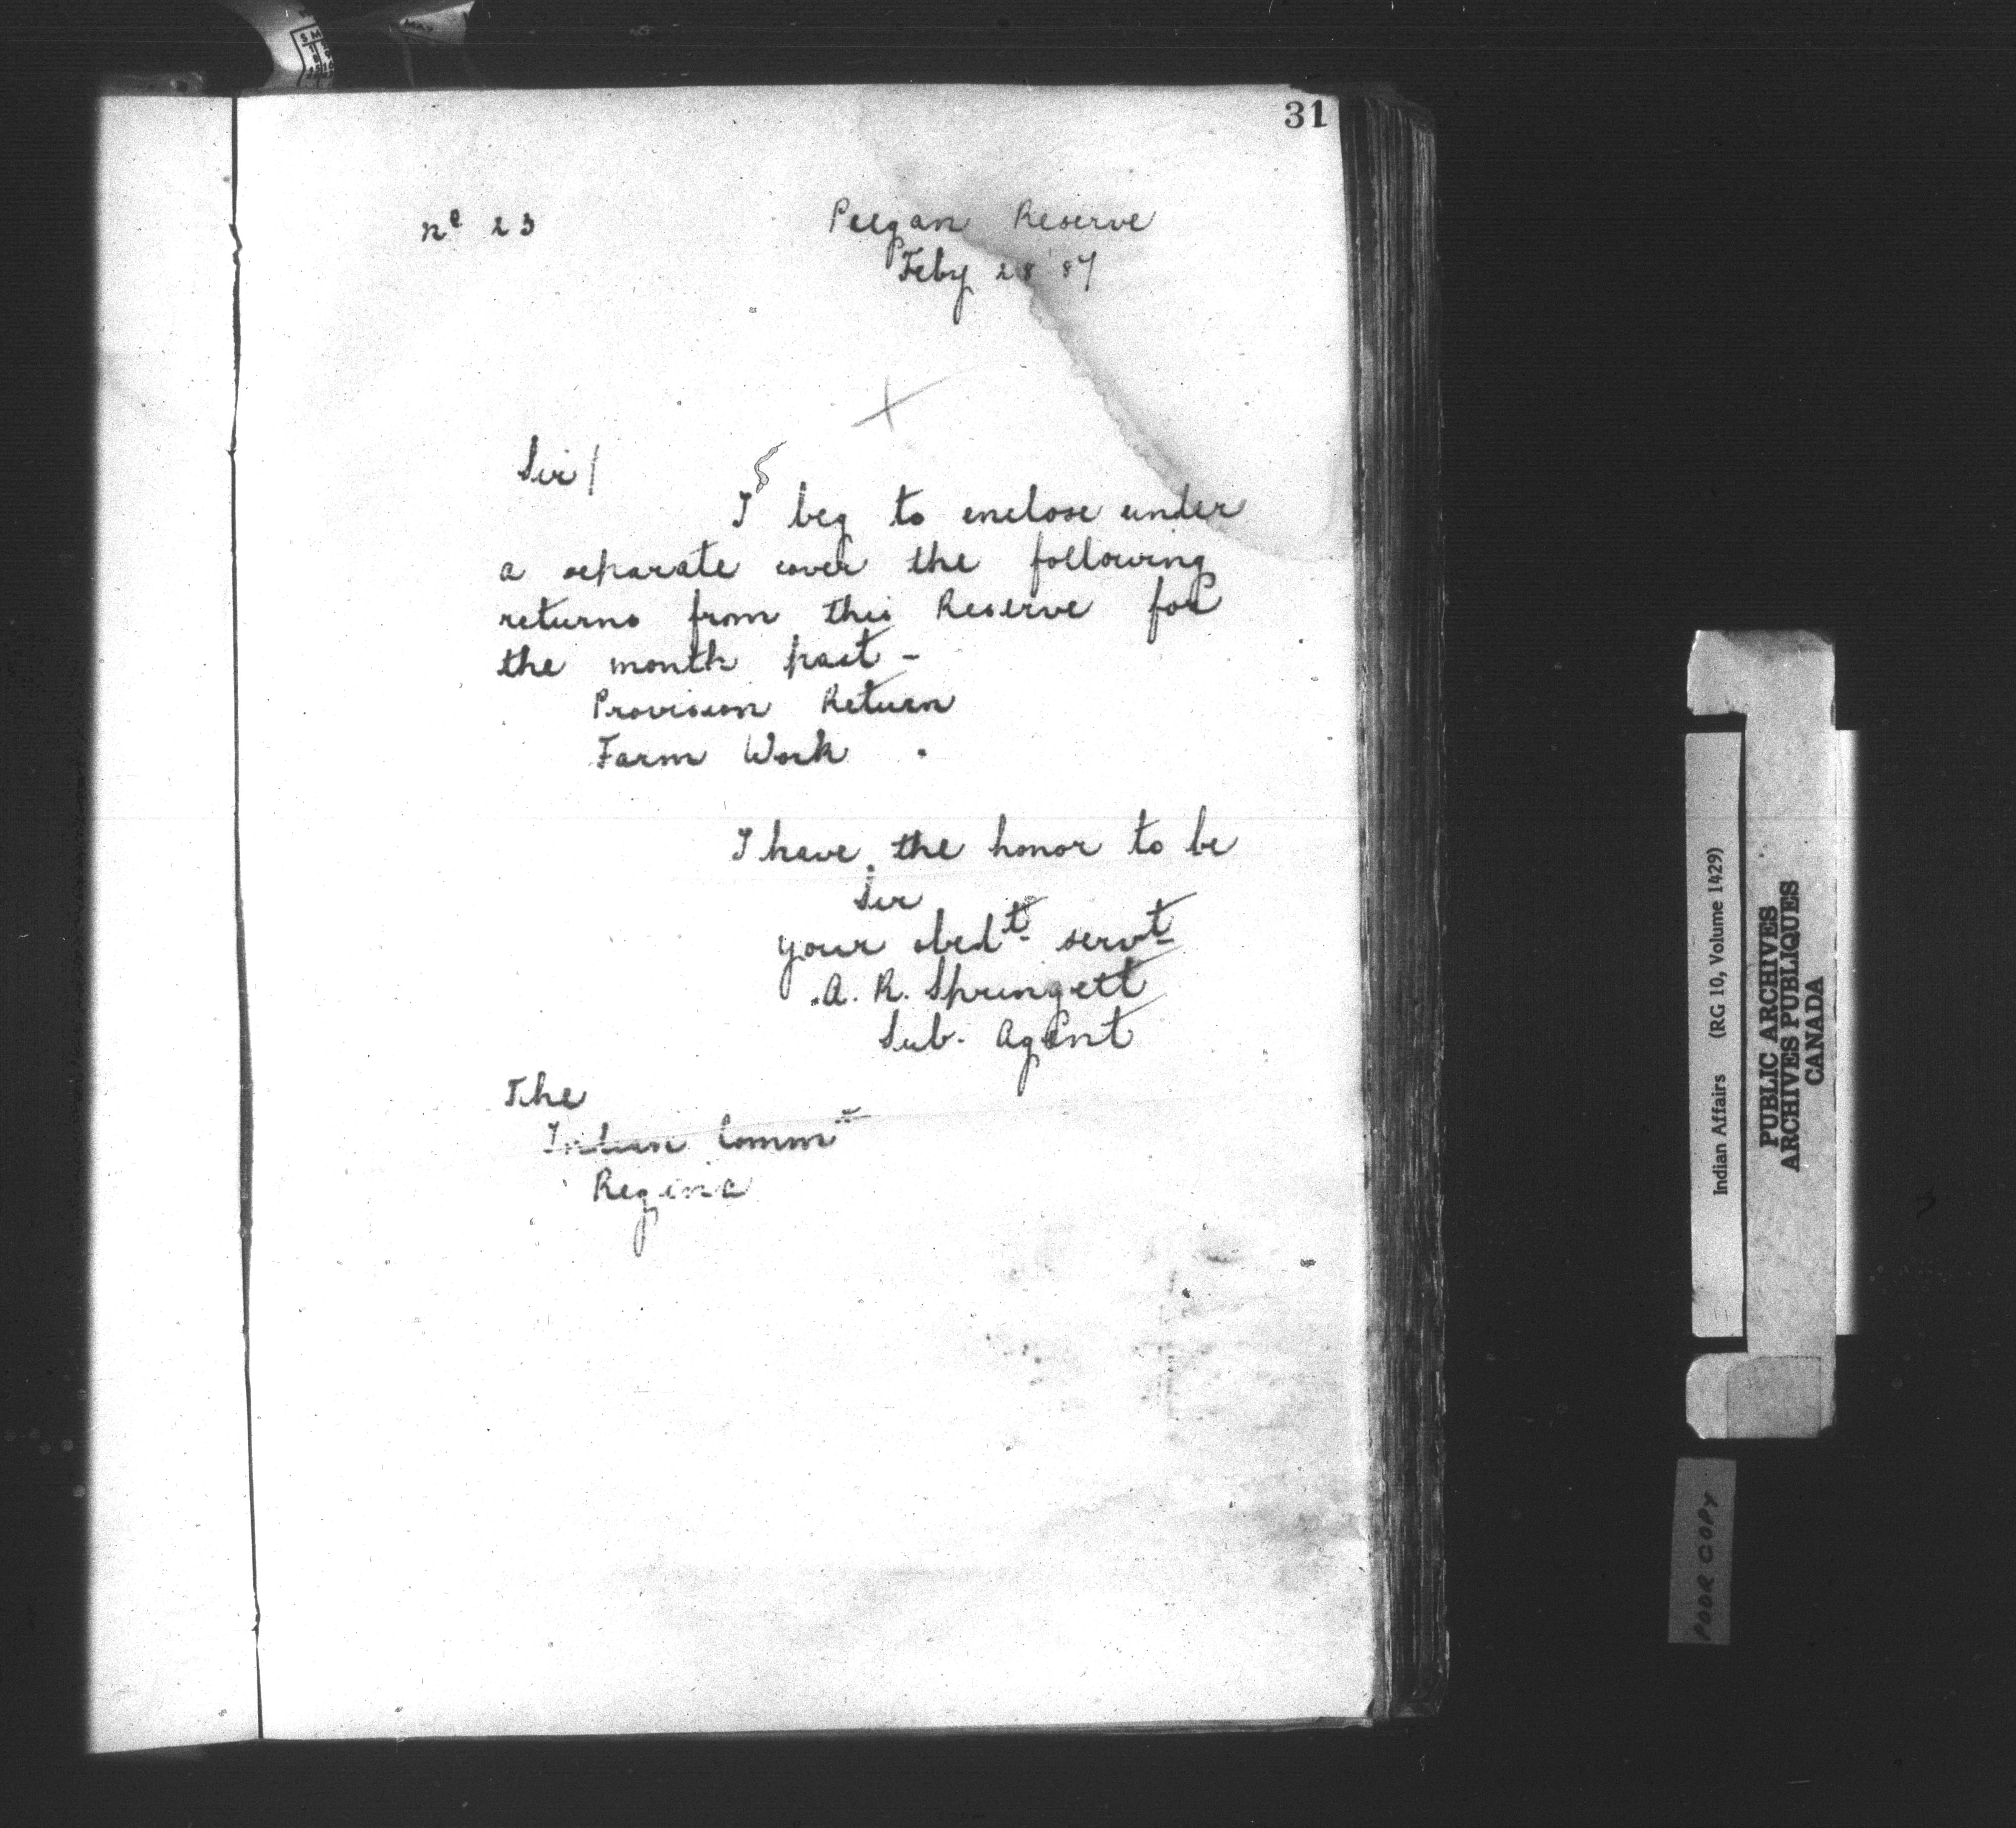 31
No 23
Peegan Reserve
Feby 28 '87
Sir /
I beg to enclose under
a separate cover the following
returns from this Reserve for
the month past -
Provision Return
Farm Work "
I have the honor to be
Sir
your obedt servt
A. R. Springett
Sub. Agent
The
Indian Commr
Regina
Indian Affairs (RG 10, Volume 1429)
PUBLIC ARCHIVES
ARCHIVES PUBLIQUES
CANADA
POOR COPY